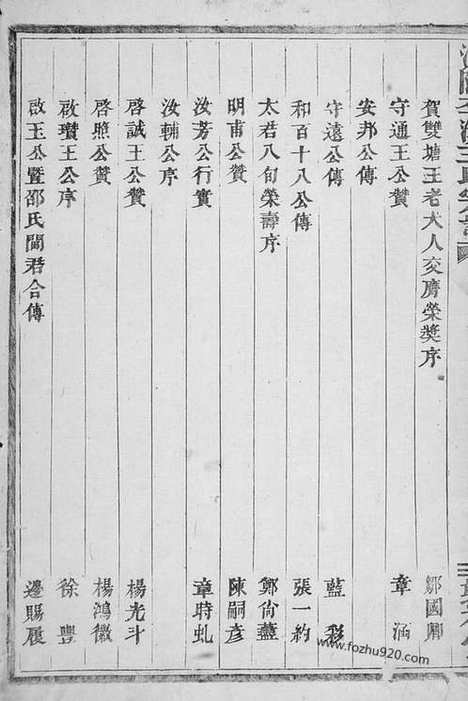 賀雙塘王老大人交膺榮奬序 鄒國
守通王公贊 章涵
安邦公傳
守遠公傳 藍彩
和百十八公傳 張一約
太君八旬榮壽序 鄭尙藎
明甫公贊 陳嗣彥
汝芳公行實 章時虬
汝輔公序
啓誠王公贊 楊光斗
啓照公贊 楊鴻徽
啟瓚王公序 徐豐
啟玉公暨邵氏闔君合傳 邊賜履
www.fozhu920.com